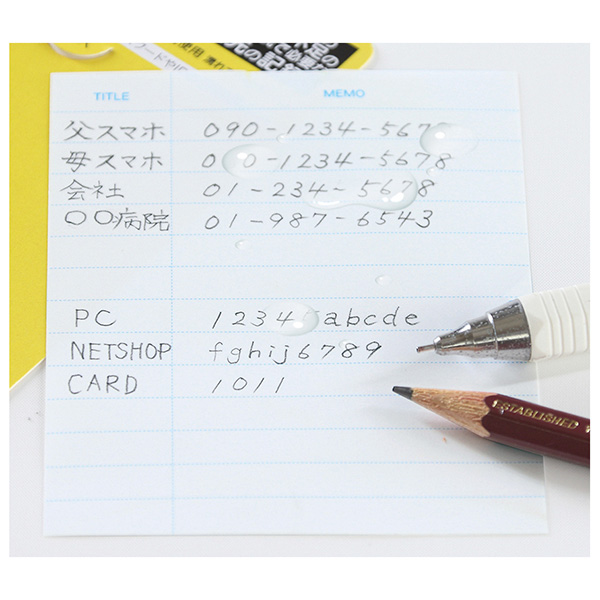 TITLE MEMO
父スマホ 090-1234-5678
母スマホ 0 0-1234-5678
会社 01-234-5678
〇〇病院 01-987-6543
PC 1234 abcde
NETSHOP fghij6789
CARD 1011
ESTABLISHED